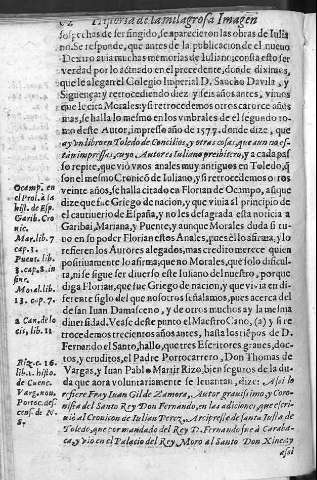 62 Historia de la milagrosa Imagen
sospechas de ser fingido, se aparecieron las obras de Iulia
no. Se responde, que antes de la publicacion de el nueuo
Dextro auia muchas memorias de Iuliano; consta esto ser
verdad por lo acotado en el precedente, donde diximos,
que le alegan el Colegio Imperial D. Sancho Dauila, y
Siguença, y retrocediendo diez y seis años antes, vimos
que le cita Morales; y si retrocedemos otros catorce años
mas, se halla lo mesmo en los vmbrales de el segundo to-
mo deste Autor, impresso año de 1577. donde dize, que
ay vn libro en Toledo de Concilios, y otras cosas, que aun no es-
tàn impressas, cuyo Autor es Iuliano presbitero, y a cada pas-
so repite, que viò vnos anales muy antiguos en Toledo, q̃
son el mesmo Cronicó de Iuliano, y si retrocedemos otros
veinte años, se halla citado en Florian de Ocampo, aũque
dize que fue Griego de nacion, y que viuia al principio de
el cautiuerio de España, y no les desagrada esta noticia a
Garibai, Mariana, y Puente, y aunque Morales duda si tu-
uo en su poder Florian estos Anales, pues èl lo afirma, y lo
refieren los Autores alegados, mas credito merece quien
positiuamente lo afirma, que no Morales, que solo dificul-
ta, ni se sigue ser diuerso este Iuliano del nuestro, porque
diga Florian, que fue Griego de nacion, y que viuia en di-
ferente siglo del que nosotros señalamos, pues acerca del
de san Iuan Damasceno, y de otros muchos ay la mesma
diuersidad. Vease deste punto el Maestro Cano, (2) y si re
trocedemos trecientos años antes, hasta los tiẽpos de D.
Fernando el Santo, hallo, que tres Escritores graues, doc-
tos, y eruditos, el Padre Portocarrero, Don Thomas de
Vargas, y Iuan Pablo Martir Rizo, bien seguros de la du-
da que aora voluntariamente se leuantan, dize: Assi lo
refiere Fray Iuan Gil de Zamora, Autor grauissimo, y Coro-
nista del Santo Rey Don Fernando, en las adiciones, que escri-
uiò al Cronicon de Iulian Perez, Arcipreste de santa Iusta de
Toledo, que por mandado del Rey D. Fernando fue à Caraba-
ca, y viò en el Palacio del Rey Moro al Santo Don Ximeno,
assi
Ocamp. en
el Prol. a la
hist. de Esp.
Garib. Cro
nic.
Mar. lib. 7
cap. 3.
Puent. lib.
3. cap. 8. in
fine.
Moral. lib.
13. cap. 7.
2 Can. de lo
cis, lib. 11
Riz. c. 16.
lib. 1. histo.
de Cuenc.
8.